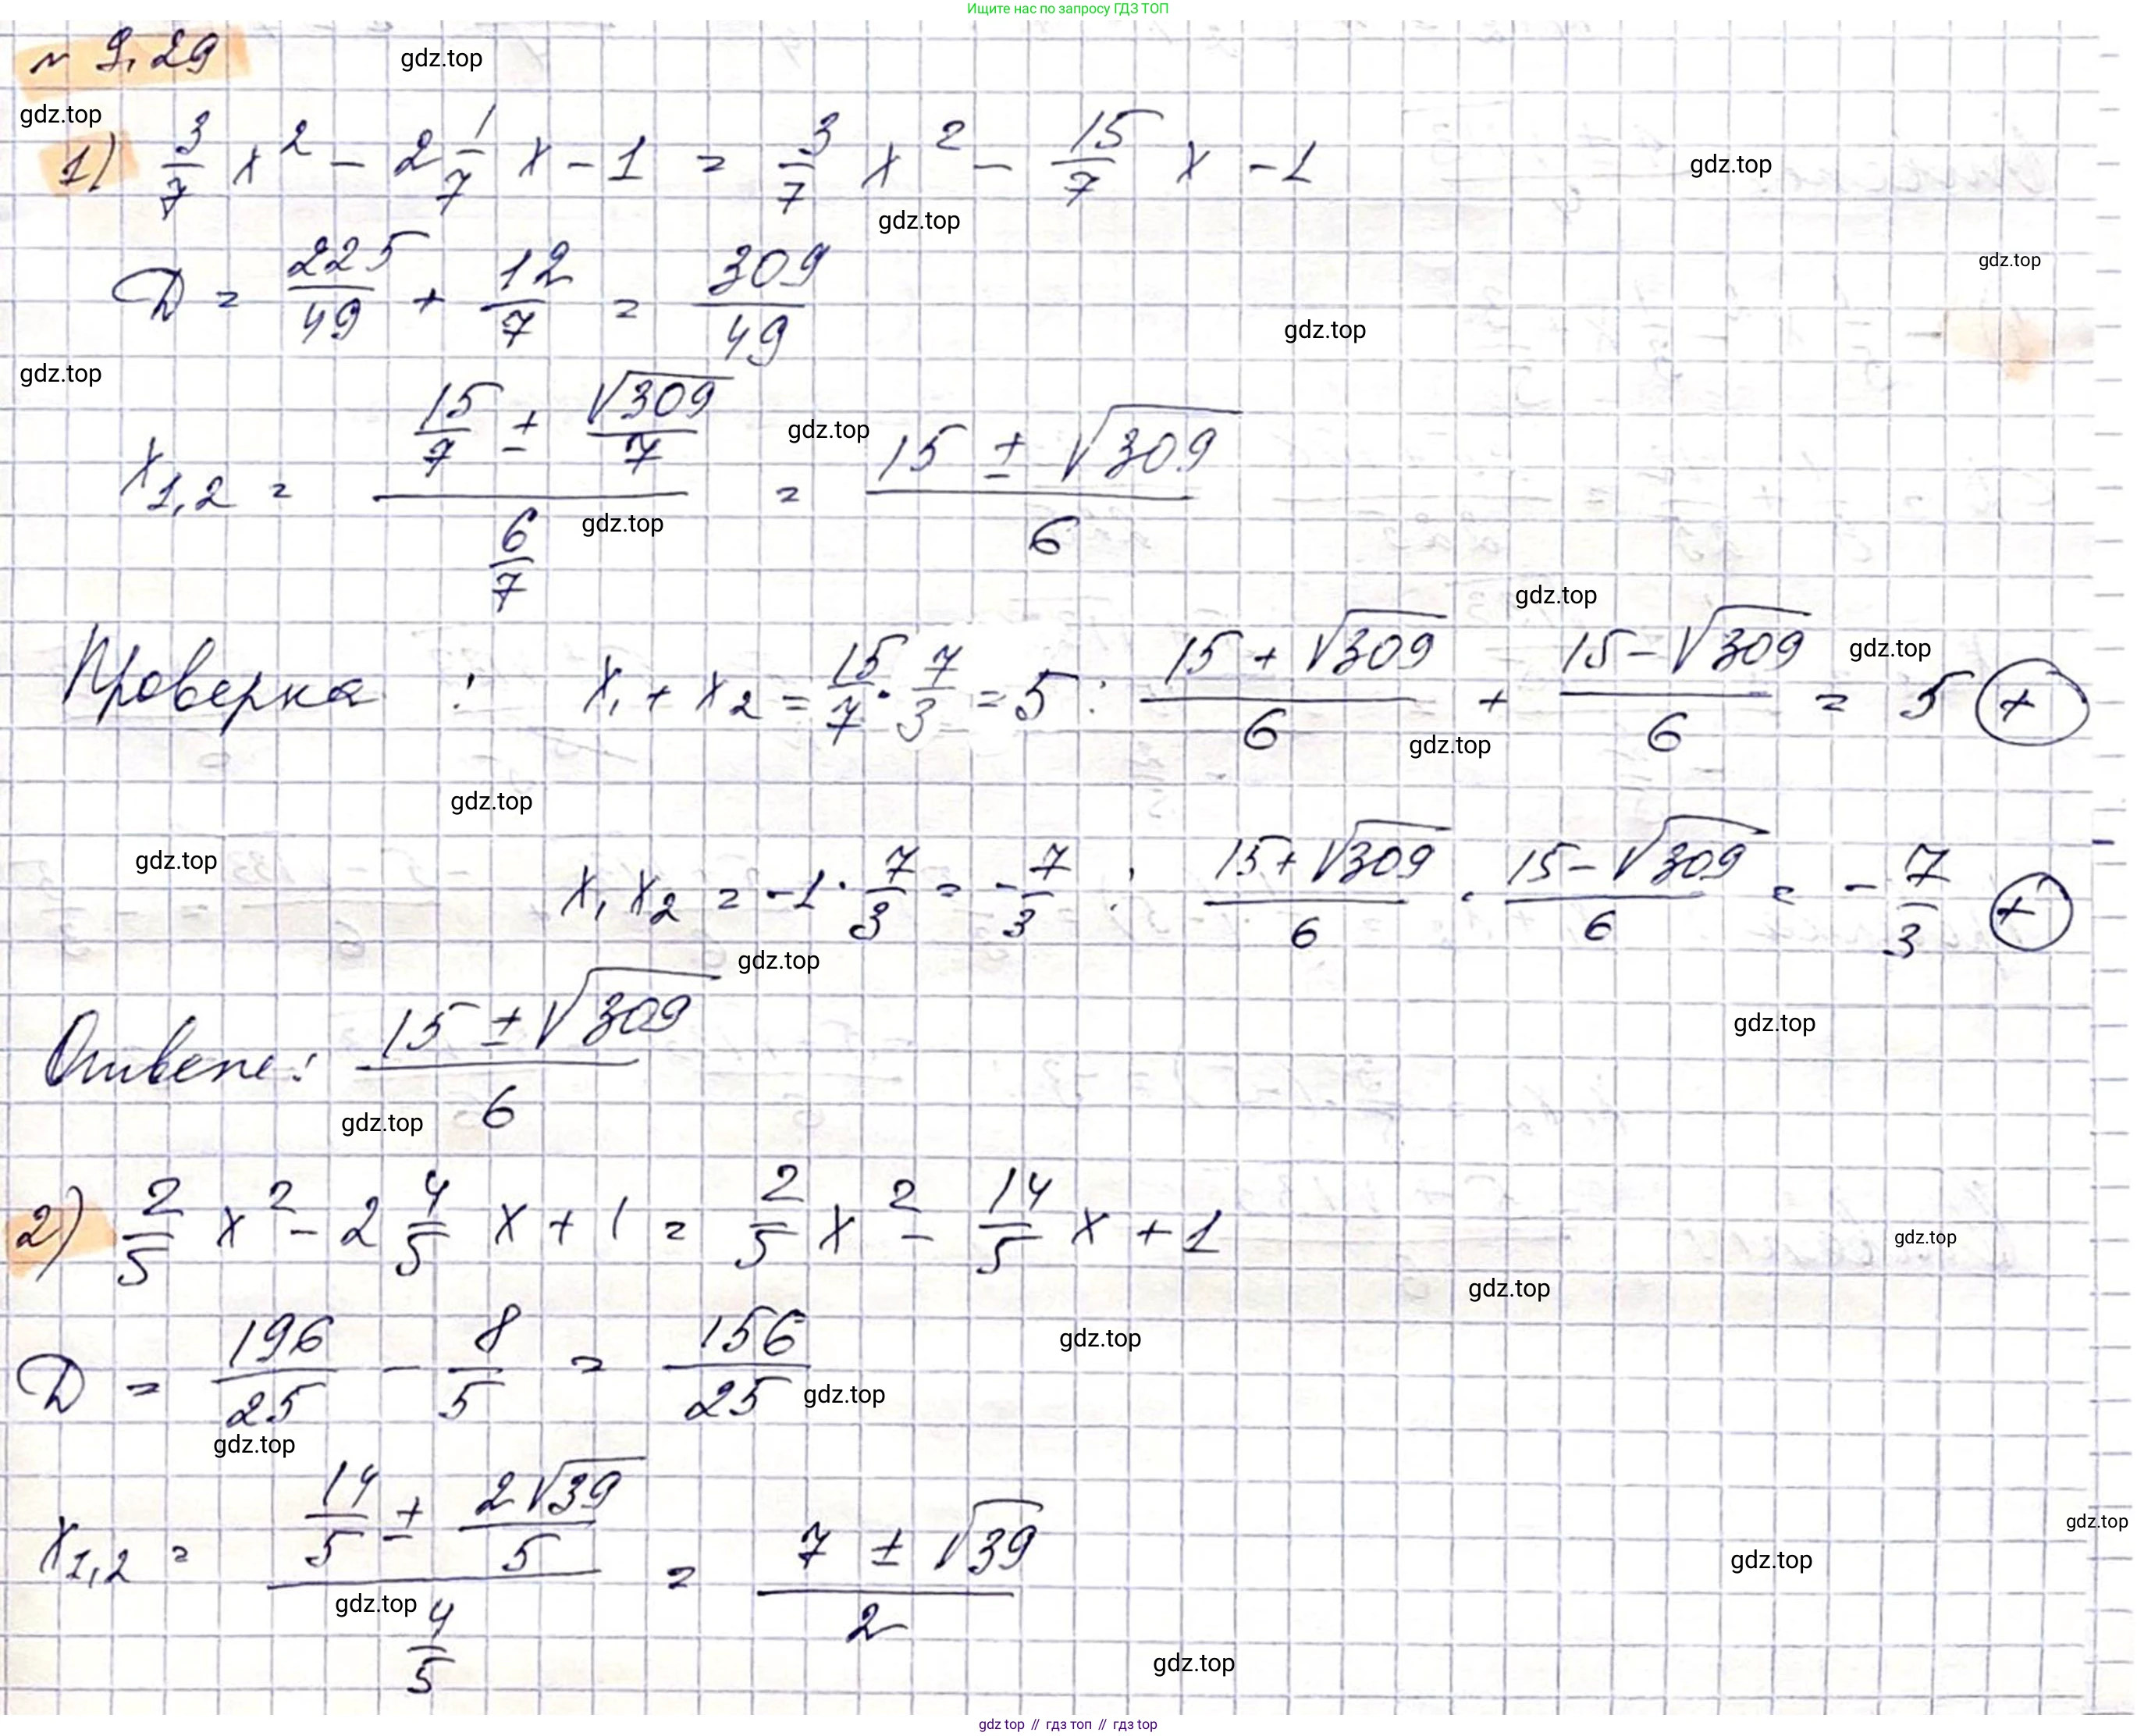 Ищите нас по запросу ГДЗ ТОП
№ 9.29
gdz.top
gdz.top
1) 3/7 x² - 2 1/7 x - 1 = 3/7 x² - 15/7 x - 1
gdz.top
gdz.top
gdz.top
D = 225/49 + 12/7 = 309/49
gdz.top
gdz.top
x1,2 = (15/7 ± √309/7) / (6/7) = (15 ± √309)/6
gdz.top
gdz.top
gdz.top
Проверка : x₁ + x₂ = 15/7 · 7/3 = 5 : (15 + √309)/6 + (15 - √309)/6 = 5 (+)
gdz.top
gdz.top
gdz.top
gdz.top
x₁ x₂ = -1 · 7/3 = -7/3 : (15 + √309)/6 · (15 - √309)/6 = -7/3 (+)
gdz.top
gdz.top
Ответ: (15 ± √309)/6
gdz.top
2) 2/5 x² - 2 4/5 x + 1 = 2/5 x² - 14/5 x + 1
gdz.top
gdz.top
D = 196/25 - 8/5 = 156/25
gdz.top
gdz.top
gdz.top
x1,2 = (14/5 ± 2√39/5) / (4/5) = (7 ± √39)/2
gdz.top
gdz.top
gdz.top
gdz.top
gdz top // гдз топ // gdz top